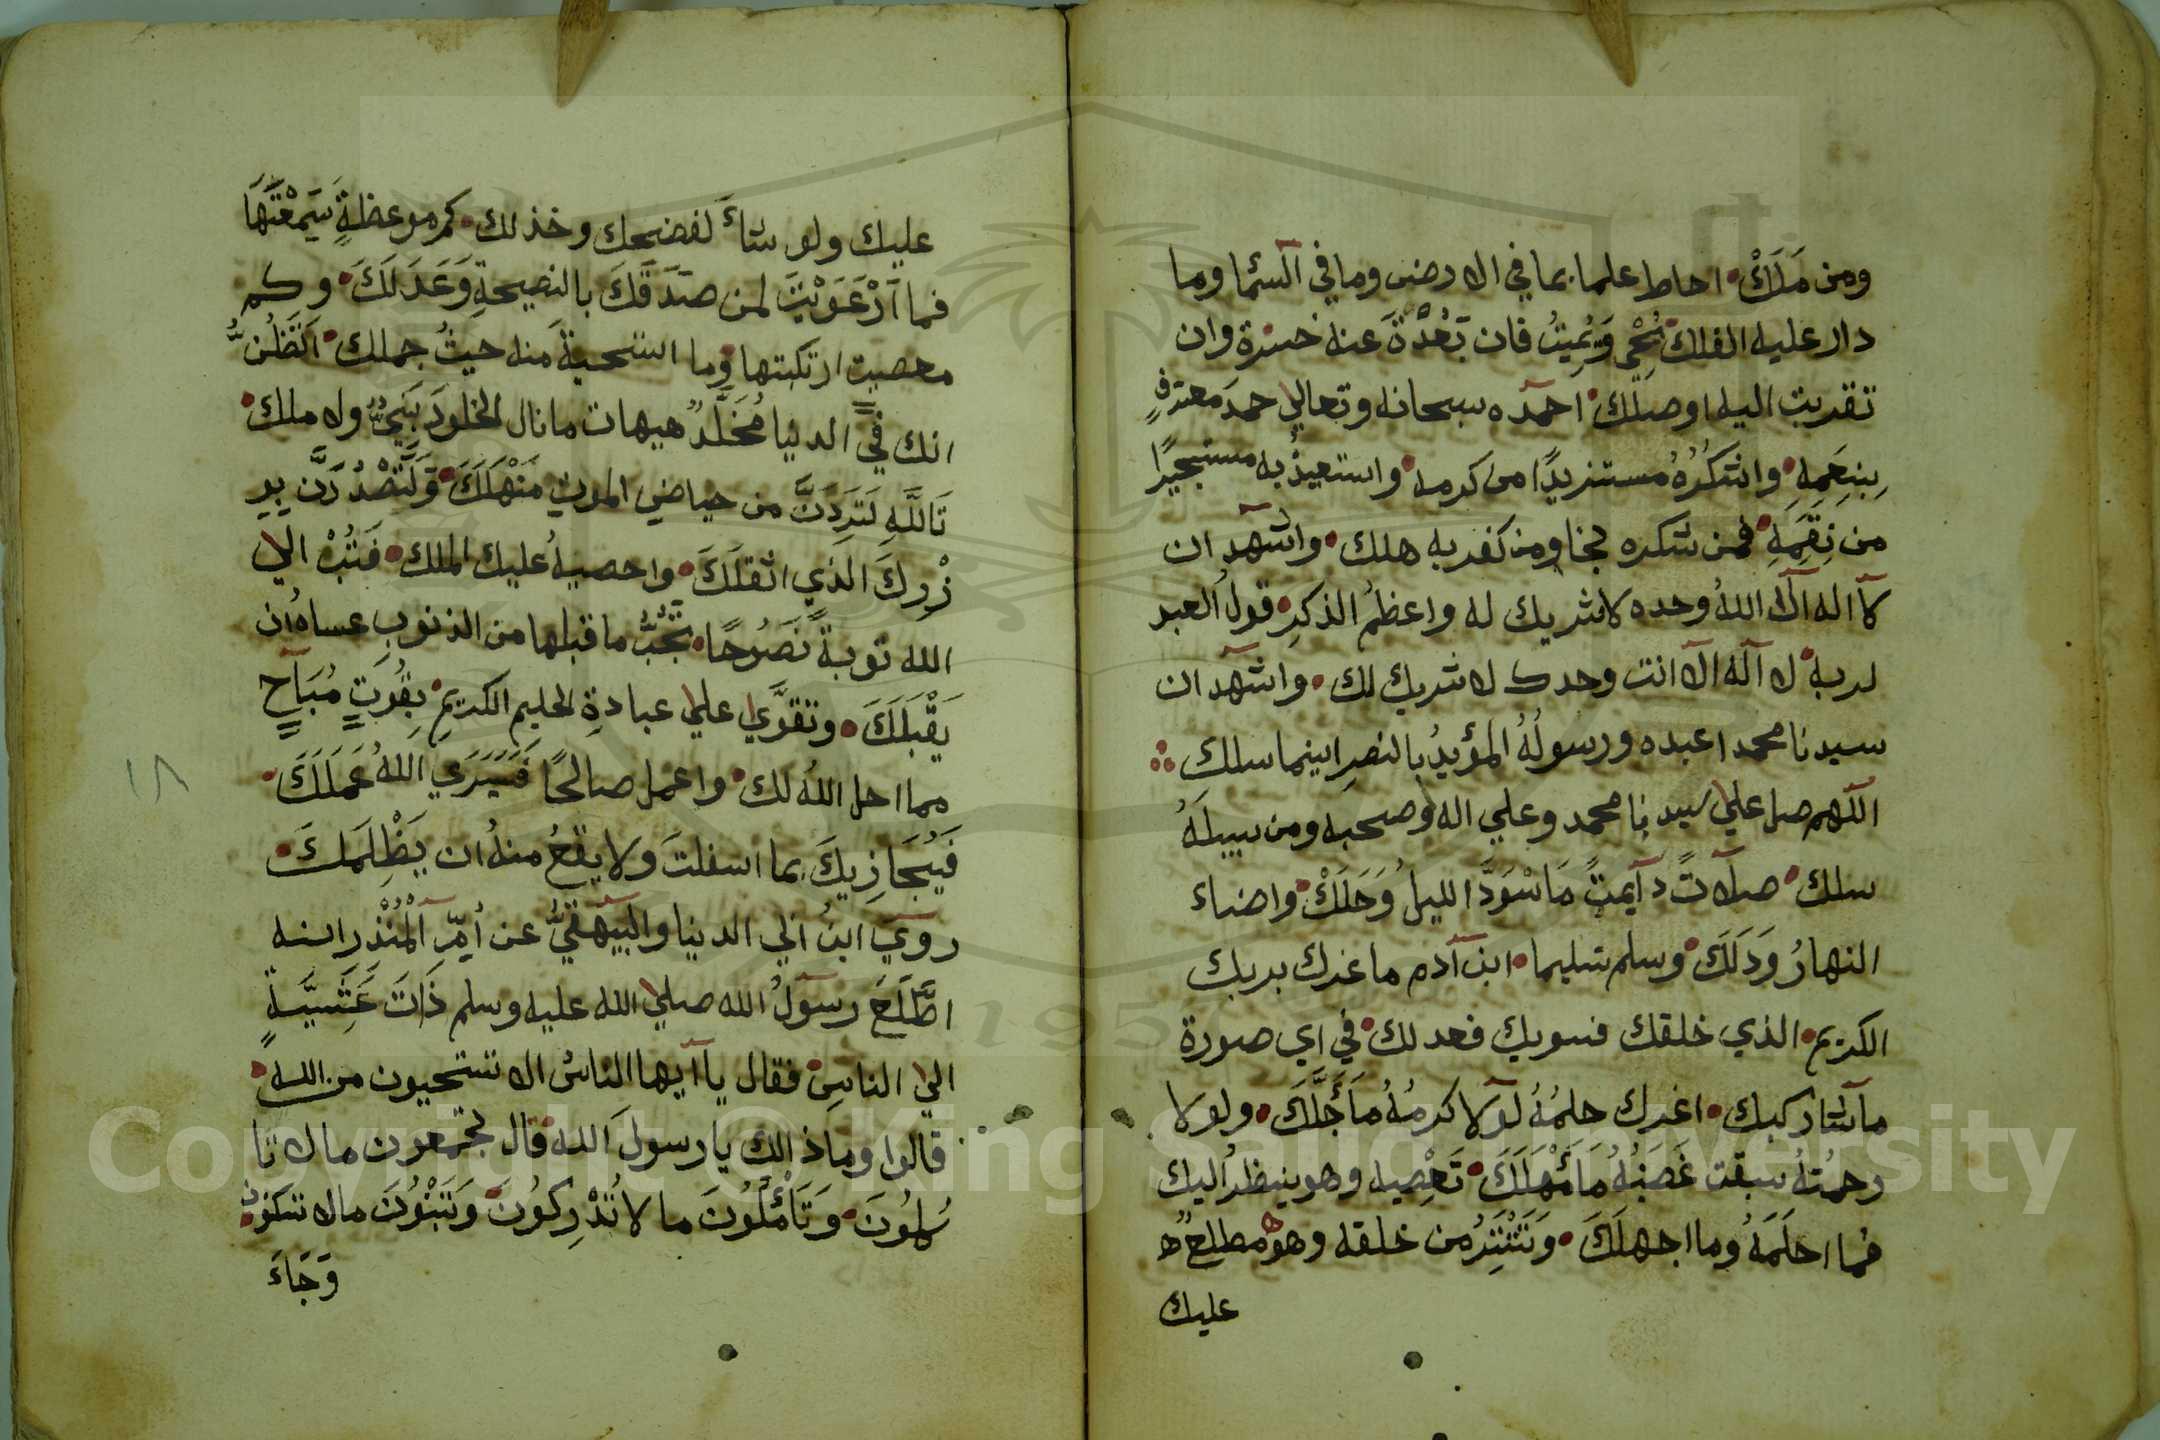 ومن مَلَكْ • احاط علما بما في الارض وما في السما وما
دار عليه الفلك يُحْيِ وَيُمِيتُ فان بَعُدْةَ عنه خسرة وان
تقربت اليه اوصلك • احمده سبحانه وتعالي حمدَ معترفٍ
بِنِعَمِهِ • واشكُرُهُ مستزيدًا من كرمه • واستعيذُ به مستجيرًا
من نِقَمَةِ • فمن شكره نجا ومن كفر به هلك • واشهد ان
لا اله الا اللهُ وحده لا شريك له واعظمُ الذكرِ • قولُ العبد
لربة • لا اله الا انت وحدك لا شريك لك • واشهد ان
سيدنا محمدا عبده ورسولُهُ المؤيدُ بالنصرِ اينما سلك
اللهم صل علي سيدنا محمد وعلي اله وصحبه ومن سبيلَهُ
سلك • صلاتً دايمتً مَا سْوَدَّ الليلُ وَحَلَكْ • واضاء
النهارُ وَدَلَكَ • وسلم تسليما • ابن آدم ما غرك بربك
الكريم • الذي خلقك فسويك فعدلك • في اي صورة
ما شا ركبك • اغرك حلمُهُ لولا كرمُهُ مَا أَجَّلَكَ • ولولا
رحمتُهُ سبقت غَضَبُهُ مَا أَمْهَلَكَ • تَعْصِيه وهو ينظرُ اليك
فما احلَمَهُ وما اجهلَكَ • وَتَسْتَتِرُ من خلقه وهو مطلعٌ
عليك
عليك ولو شاءَ لفضحك وخذلك • كم موعظةٍ سَمِعْتَهَا
فما اَرْعَوَيْتَ لمن صَدَقَكَ بالنصيحةِ وَعَدَلَكَ • وكم
معصيت ارتكبتها وما استحيةَ منه حيثُ جملك • اَتَظُنُّ
انك في الدنيا مُخَلَّدٌ هيهات ما نال الخلودَ نَبِيٌّ ولا ملك •
تَاللَّهِ لَتَرِدَنَّ من حياضِ الموتِ مَنْهَلَكَ • وَلَتَصْدُرَنَّ بِوِ
زْرِكَ الذي اثقلَكَ • واحصيهُ عليك الملك • فَتُبْ الي
الله توبةً نَصُوحًا • تَجُبُّ ما قبلها من الذنوبِ عساهُ ان
يَقْبَلَكَ • وتقوَّي علي عبادةِ الحليمِ الكريمِ • بِقُوتٍ مُبَاحٍ
مما احل اللهُ لك • واعمل صالحًا فَسَيَرَي اللهُ عَمَلَكَ •
فَيُجَازِيكَ بما اسفلتَ ولا يقعُ منهُ ان يَظْلِمَكَ •
روي ابنُ ابي الدنيا والبَيْهَقيُّ عن اُمِّ الْمُنْذِر انه
اطَّلَعَ رسولُ الله صلي الله عليه وسلم ذَاتَ عَشِيَّةٍ
الي الناسِ • فقال يا ايها الناسُ الا تستحيون من الله •
قالوا وما ذالك يا رسولَ الله قال تجمعون ما لا تا
كلُونَ • وَتَأْمُلُونَ ما لا تُدْرِكُونَ وَتَبْنُونَ مالا تسكنون
وَجَاءَ
١٨
Copyright © King Saud University
1957